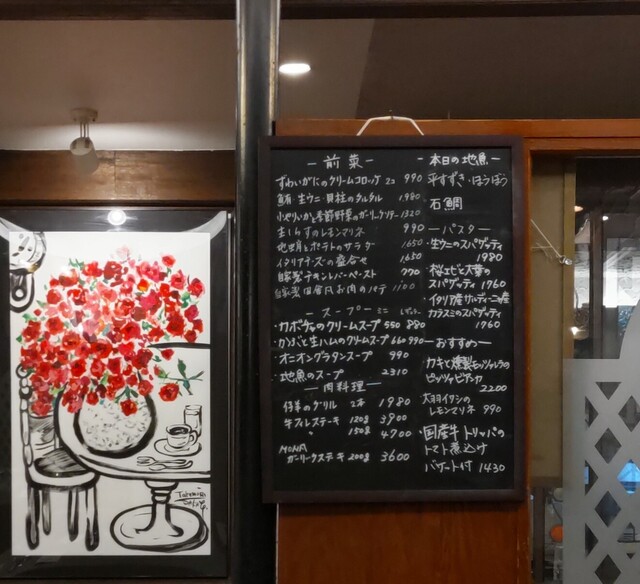 ー前菜ー
ずわいがにのクリームコロッケ 2コ 990
鮪・生ウニ・貝柱のタルタル 1.980
小やりいかと季節野菜のガーリックソテー 1320
生しらすのレモンマリネ 990
地蛸とポテトのサラダ 1650
イタリアチーズの盛合せ 1650
自家製チキンレバーペースト 770
自家製田舎風お肉のパテ 1100
ースープー ミニ レギュラー
・カボチャのクリームスープ 550 880
・かぶと生ハムのクリームスープ 660 990
・オニオングラタンスープ 990
・地魚のスープ 2310
ー肉料理ー
仔羊のグリル 2本 1980
牛ヒレステーキ 120g 3900
〃 150g 4700
MONA
ガーリックステーキ 200g 3600
ー本日の地魚ー
平すずき・ほうぼう
石鯛
ーパスター
・生ウニのスパゲッティ
1980
・桜エビと大葉の
スパゲッティ 1760
・イタリア産サルディーニャ産
カラスミのスパゲッティ
1760
ーおすすめー
カキと燻製モッツァレラの
ピッツァビアンカ
2200
大羽イワシの
レモンマリネ 990
・国産牛トリッパの
トマト煮込け
バゲット付 1430